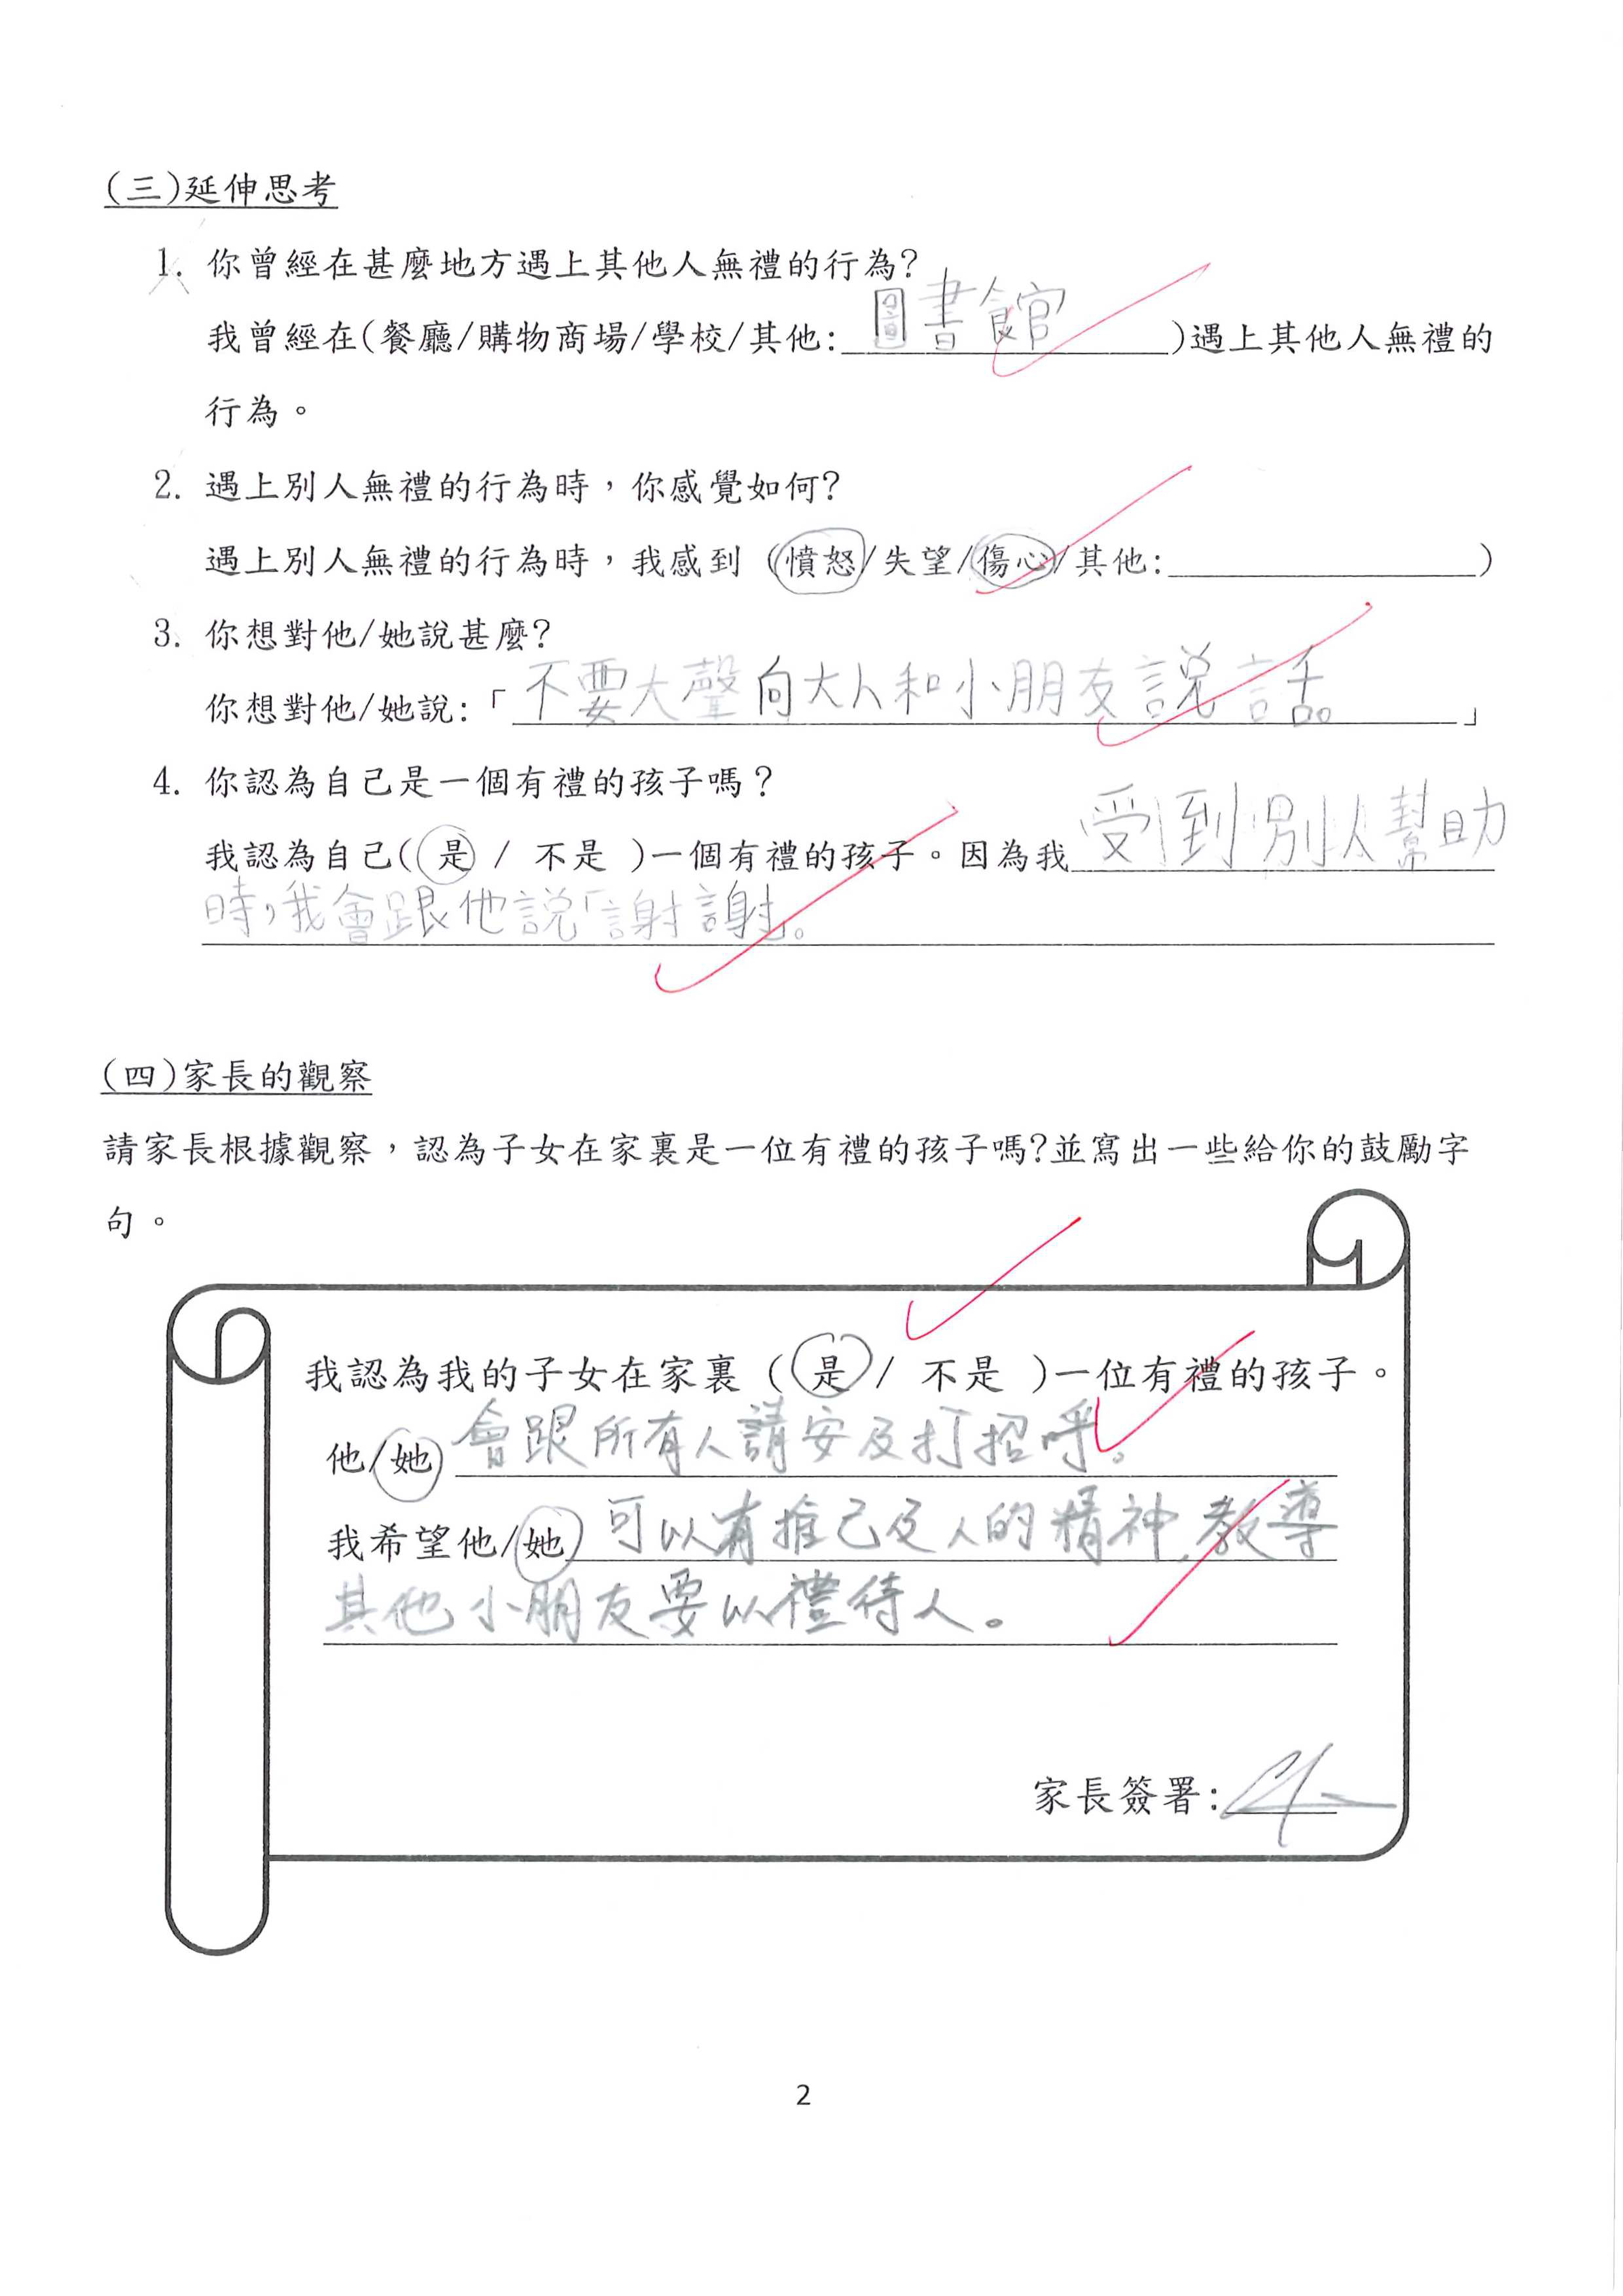 (三)延伸思考
1. 你曾經在甚麼地方遇上其他人無禮的行為?
我曾經在(餐廳/購物商場/學校/其他:圖書館)遇上其他人無禮的
行為。
2. 遇上別人無禮的行為時，你感覺如何?
遇上別人無禮的行為時，我感到 (憤怒/失望/傷心/其他:____________)
3. 你想對他/她說甚麼?
你想對他/她說:「不要大聲向大人和小朋友說話。」
4. 你認為自己是一個有禮的孩子嗎？
我認為自己(是 / 不是 )一個有禮的孩子。因為我受到別人幫助
時，我會跟他說「謝謝」。
(四)家長的觀察
請家長根據觀察，認為子女在家裏是一位有禮的孩子嗎?並寫出一些給你的鼓勵字
句。
我認為我的子女在家裏 (是 / 不是 )一位有禮的孩子。
他/她會跟所有人請安及打招呼。
我希望他/她可以有推己及人的精神,教導
其他小朋友要以禮待人。
家長簽署:
2